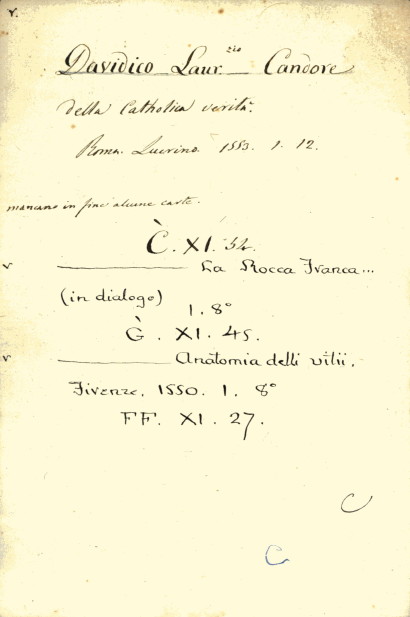 v.
Davidico Laur.zio Candore
della Catholica verità.
Roma. Lucrino. 1553. 1. 12.
mancano in fine alcune carte.
C̀. XI. 54.
v ——— La Rocca Franca...
(in dialogo)
1. 8°
G̀. XI. 45.
v ——— Anatomia delli vitii.
Firenze. 1550. 1. 8°
FF. XI. 27.
C
C